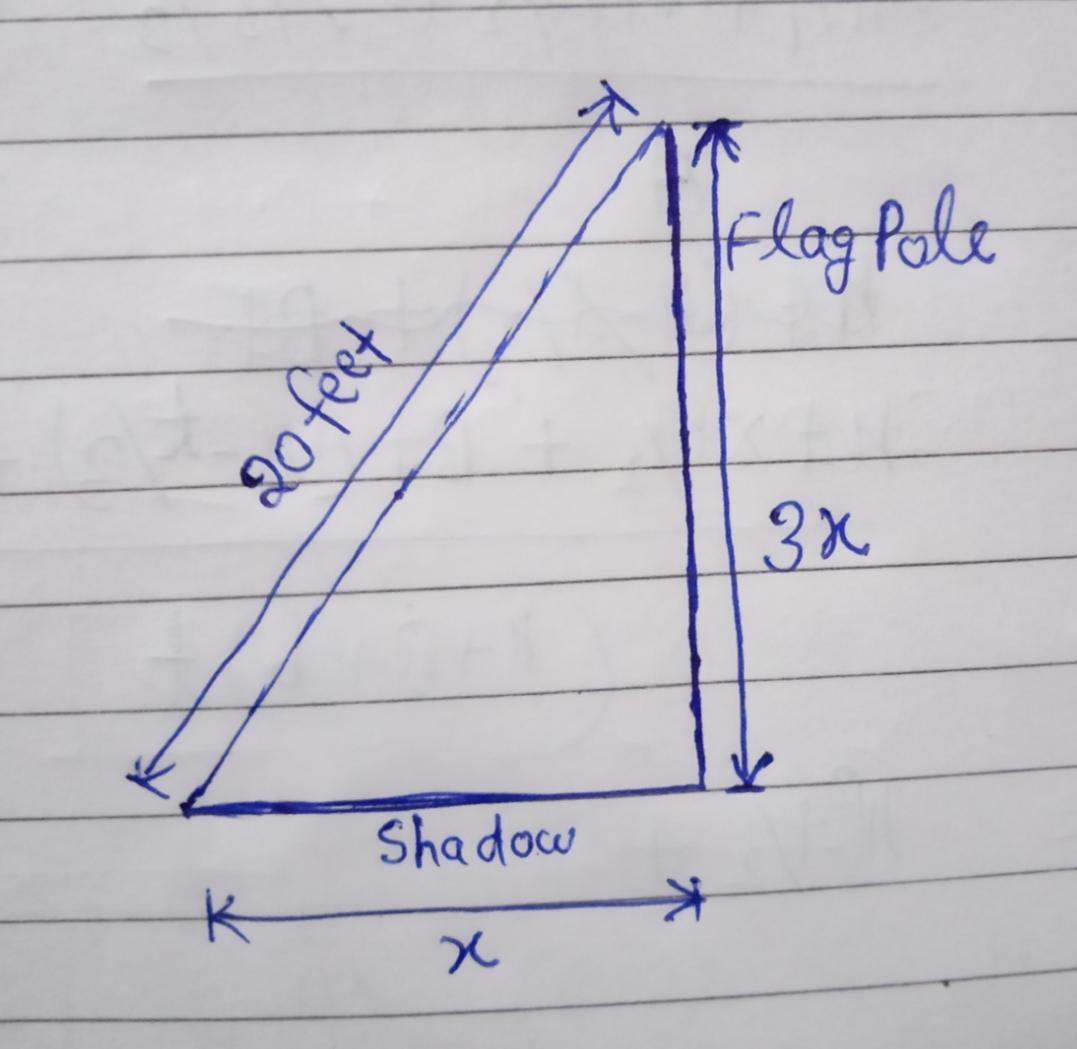 Flag Pole
20 feet
3x
Shadow
x